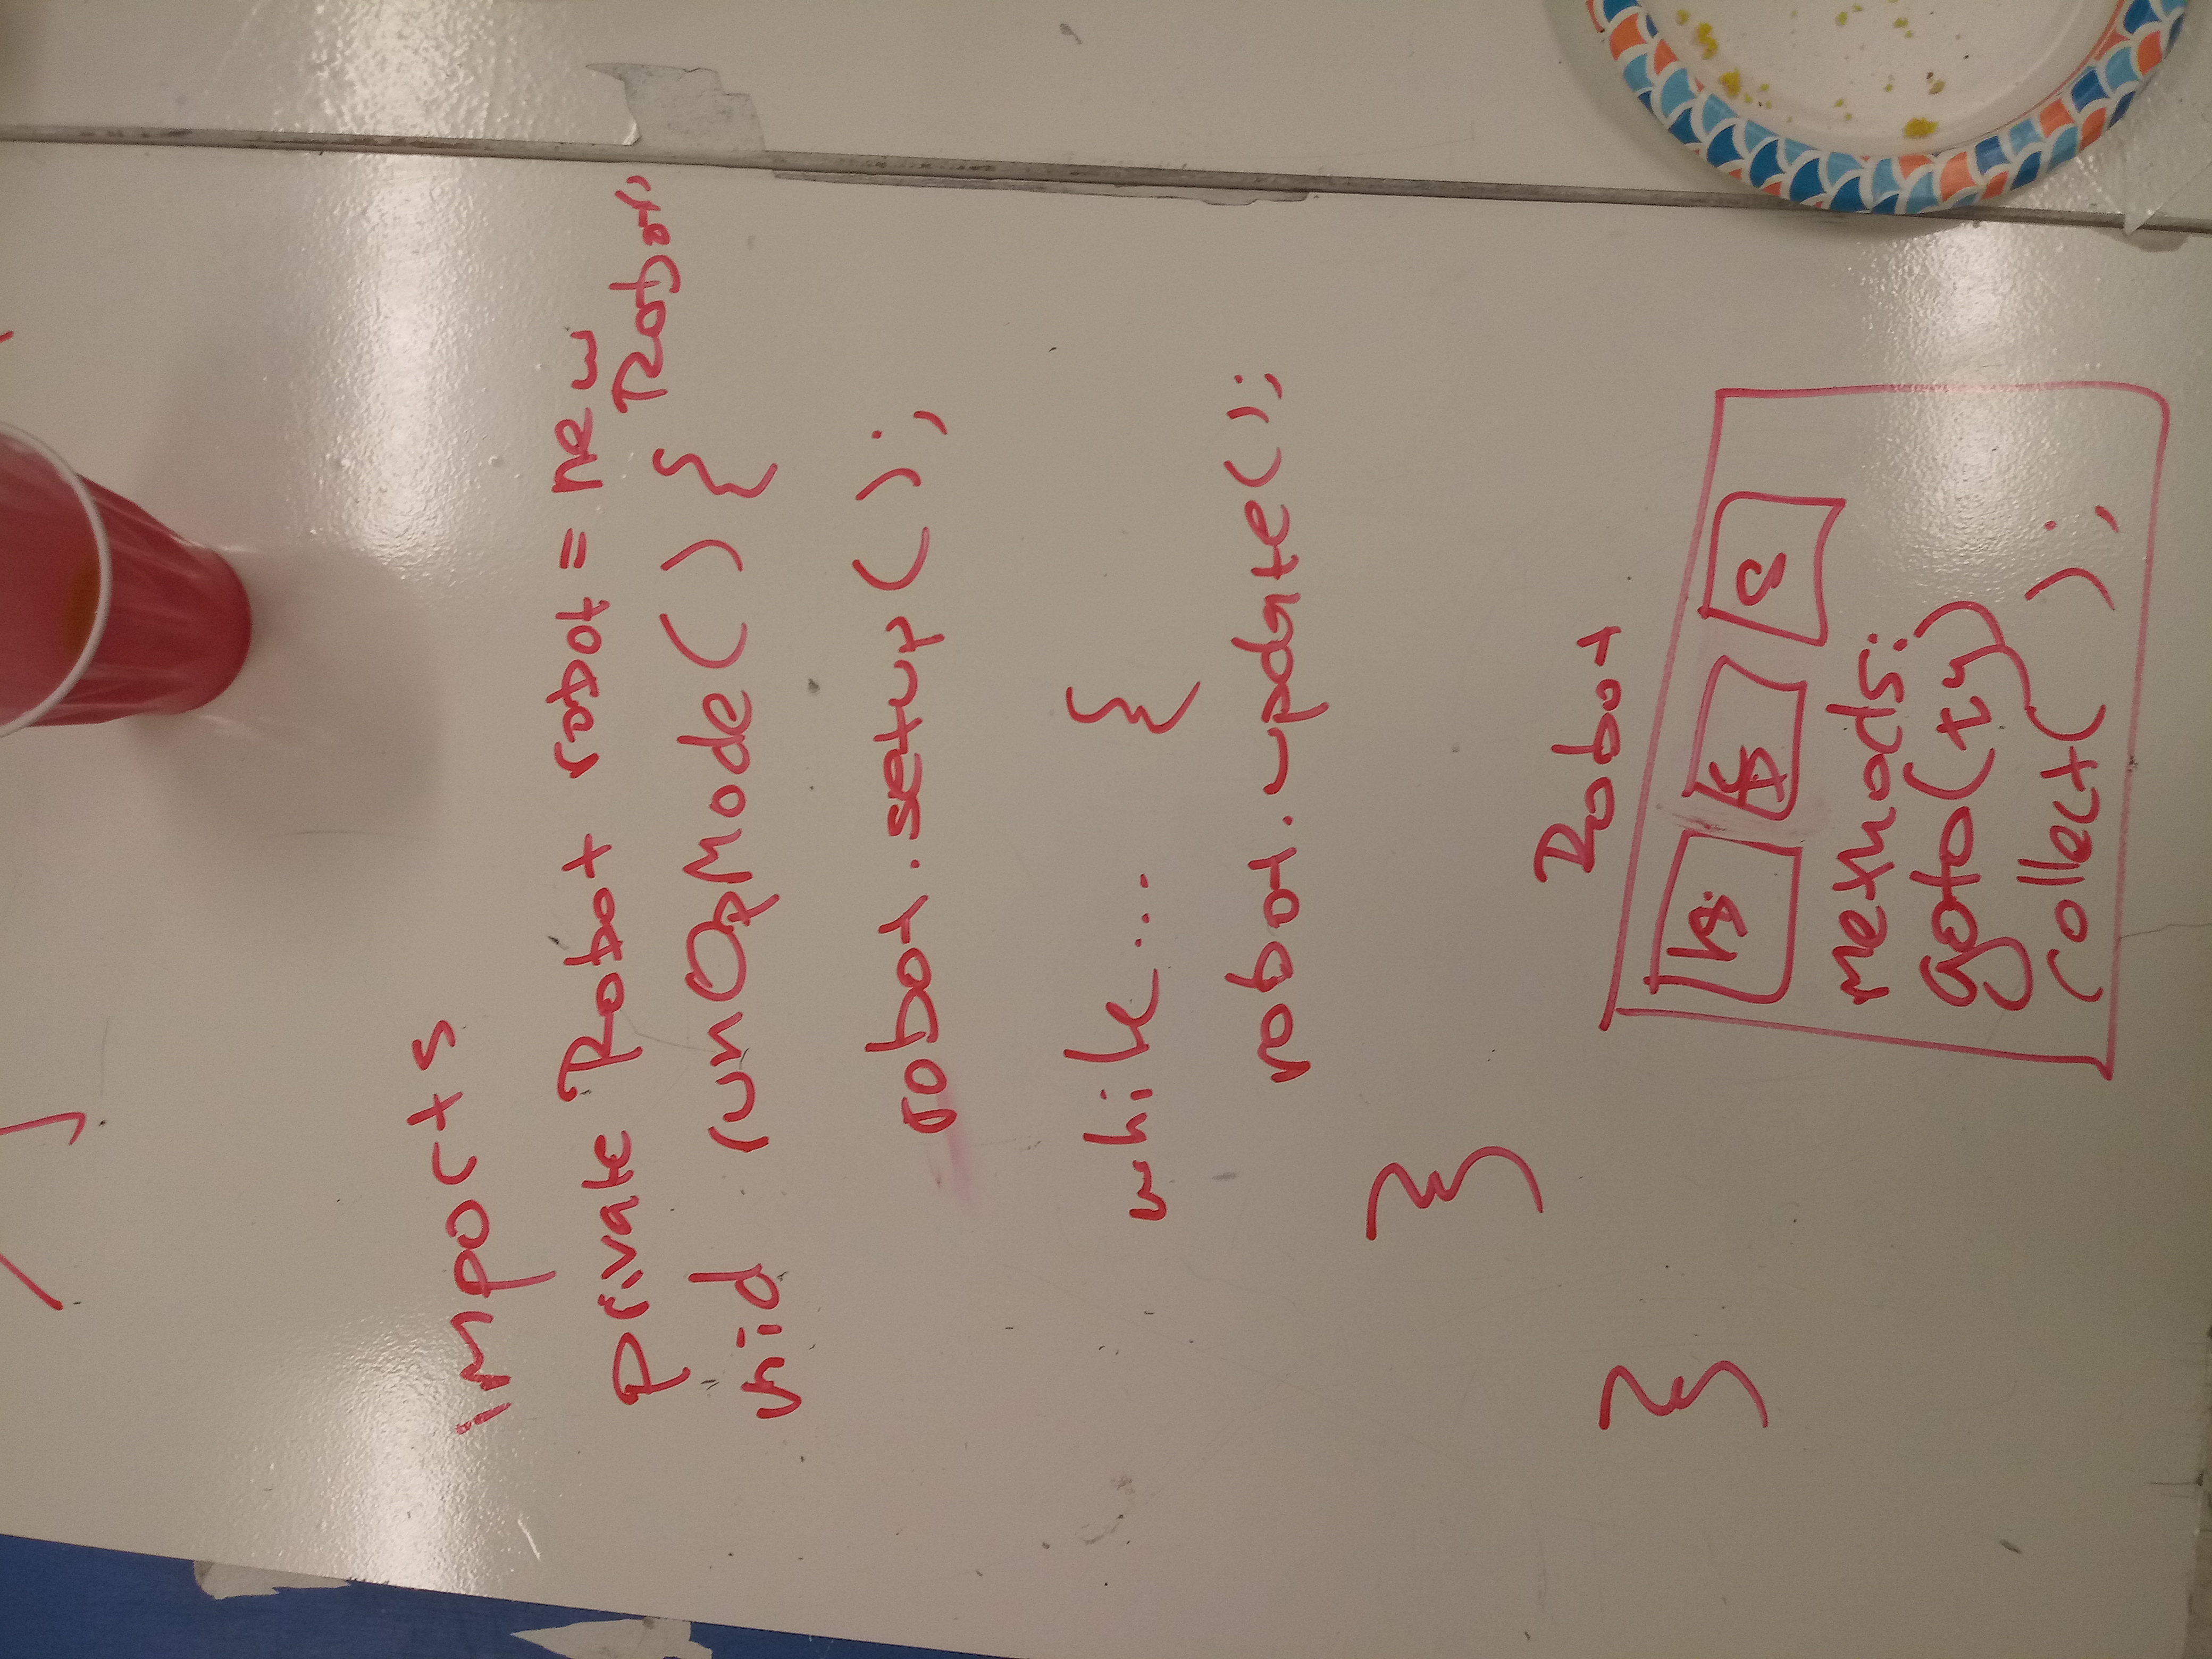 imports
private Robot robot = new Robot";
void runOpMode() {
robot.setup();
while... {
robot.update();
}
}
Robot
S
methods:
goto(x,y)
collect();